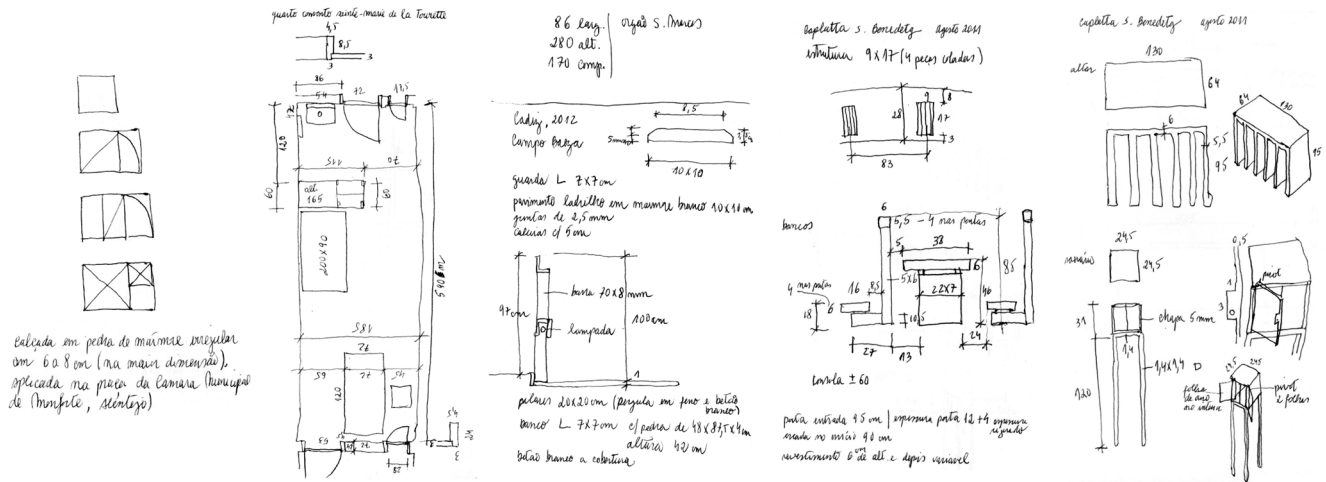 calçada em pedra de mármore irregular
com 6 a 8 cm (na maior dimensão),
aplicada na praça da Camara Municipal
de Monforte, Alentejo)
quarto convento sainte-marie de la Tourette
4,5
8,5
3
3
86
54
72
120
115
70
60
alt.
165
60
200x90
185
72
65
72
45
120
55
72
28
24
3
86 larg.
280 alt.
170 comp.
orgão S. Marcos
Cadiz, 2012
Campo Baeza
8,5
5mm
10x10
guarda L 7x7cm
pavimento ladrilho em marmore branco 10x10 cm
juntas de 2,5mm
caleiras c/ 5cm
97cm
barra 70x8mm
lampada
100cm
1
pilares 20x20cm (pergula em ferro e betão
branco)
banco L 7x7cm c/ pedra de 48x87,5x4cm
altura 42cm
betão branco a cobertura
caplutta s. Benedetg agosto 2011
estrutura 9x17 (4 peças coladas)
9
8
28
17
3
83
bancos
6
5,5 - 4 nas portas
5
38
6
85
5x6
22x7
46
4 nas portas
16
8,5
18
10,5
27
13
24
consola ± 60
porta entrada 95 cm | espessura porta 12+4 espessura
escada no início 90 cm
revestimento 6 cm de alt. e depois variavel
caplutta S. Benedetg agosto 2011
130
altar
64
64
130
95
6
5,5
95
24,5
24,5
0,5
1
3
pivot
31
chapa 5mm
1,4
1,4x1,4
120
24,5
24,5
pivot
2 folhas